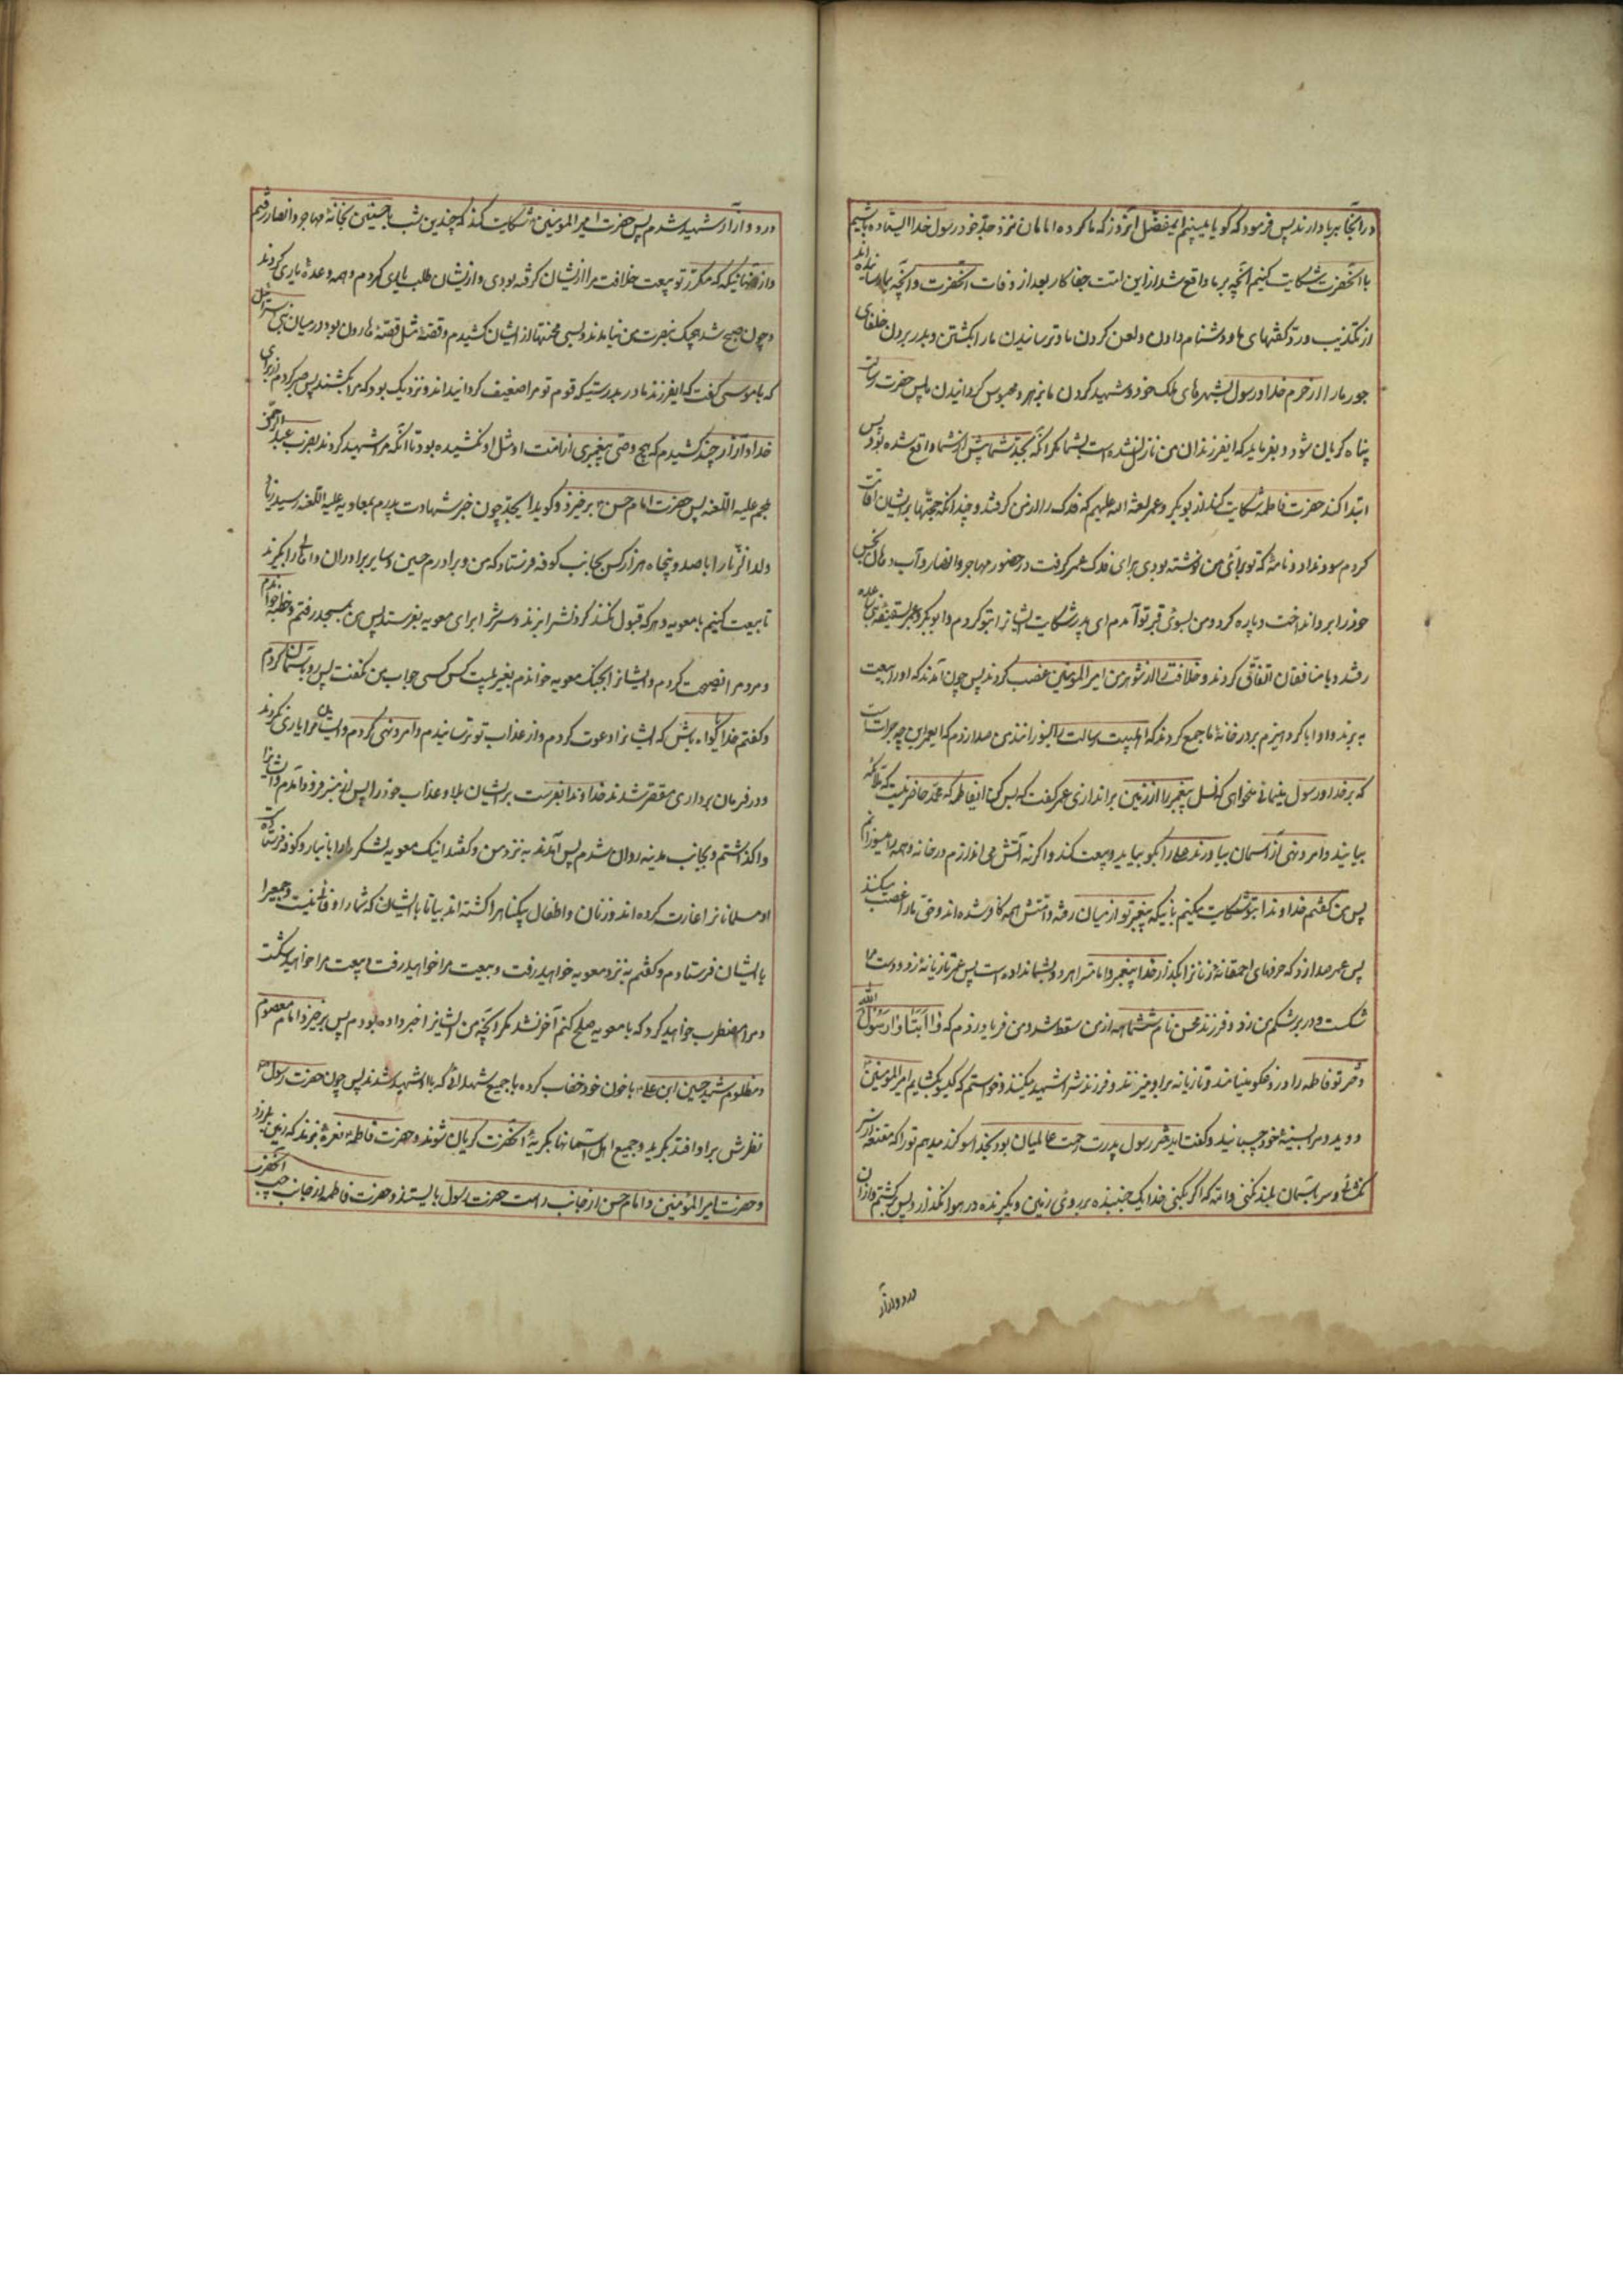 در آنجا برپا دارند پس فرمود که گویا میبینم ای مفضل آنروز که ما گروه امامان نزد جد خود رسول خدا ایستاده باشیم
با آنحضرت شکایت کنیم آنچه بر ما واقع شد از این امت جفاکار بعد از وفات آنحضرت و آنچه بما رسانیده اند
از تکذیب و رد گفتهای ما و دشنام دادن و لعن کردن ما و ترسانیدن ما را بکشتن و بدر بردن خلفای
جور ما را از حرم خدا و رسول بشهرهای ملک خود و شهید کردن ما بزهر و محبوس گردانیدن ما پس حضرت رسالت
پناه گریان شود و بفرماید که ایفرزندان من نازل نشده است بشما مگر آنکه بجد شما پیش از شما واقع شده بود پس
ابتدا کند حضرت فاطمه شکایت کند از ابوبکر و عمر لعنة الله علیهم که فدک را از من گرفتند و چندانکه حجتها بر ایشان اقامت
کردم سود نداد و نامهٔ که تو برای من نوشته بودی برای فدک عمر گرفت در حضور مهاجر و انصار و آب دهان نجس
خود را بر و انداخت و پاره کرد و من بسوی قبر تو آمدم ای پدر شکایت ایشانرا بتو کردم و ابوبکر و عمر بسقیفه بنی ساعده
رفتند و با منافقان اتفاق کردند و خلافت را از شوهر من امیر المؤمنین غصب کردند پس چون آمدند که او را ببیعت
به برند و او ابا کرد هیزم بر در خانهٔ ما جمع کردند که اهلبیت رسالت را بسوزانند من صدا زدم که ایعمر این چه جرأتست
که بر خدا و رسول مینمائی میخواهی که نسل پیغمبر را از زمین براندازی عمر گفت که بس کن ایفاطمه که محمد حاضر نیست که ملائکه
بیایند و امر و نهی از آسمان بیاورند علی را بگو بیاید و بیعت کند و اگر نه آتش می اندازم در خانه و همه را میسوزانم
پس من گفتم خداوندا بتو شکایت میکنم باینکه پیغمبر تو از میان رفته و امتش همه کافر شده اند و حق ما را غصب میکنند
پس عمر صدا زد که حرفهای احمقانهٔ زنانرا بگذار خدا پیغمبری و امامت را هر دو بشما نداده است پس عمر تازیانهٔ زد و دست مرا
شکست و در بر شکم من زد و فرزند محسن نام ششماهه از من سقط شد و من فریاد زدم که وا ابتاه وا رسول الله
دختر تو فاطمه را دروغگو مینامند و تازیانه بر او میزنند و فرزندش را شهید میکنند و خواستم که گیسو بگشایم امیر المؤمنین
دوید و مرا بسینهٔ خود چسبانید و گفت ایدختر رسول پدرت رحمت عالمیان بود بخدا سوگند میدهم تو را که مقنعه از سر
نگشائی و سر بآسمان بلند نکنی والله که اگر بکنی خدا یک جنبنده بر روی زمین و یک پرنده در هوا نگذارد پس برگشتم و از آن
درد و آزار
درد و آزار شهید شدم پس حضرت امیر المومنین شکایت کند که چندین شب با حسنین بخانهٔ مهاجر و انصار رفتم
و از آنهائیکه که مکرر تو بیعت خلافت مرا از ایشان گرفته بودی و از ایشان طلب یاری کردم و همه وعدهٔ یاری کردند
و چون صبح شد هیچیک بنصرت من نیامدند و بسی محنتها از ایشان کشیدم و قصهٔ من مثل قصهٔ هارون بود در میان بنی اسرائیل
که با موسی گفت که ایفرزند مادر بدرستیکه قوم تو مرا ضعیف گردانیده اند و نزدیک بود که مرا بکشند پس صبر کردم از برای
خدا و آزار چند کشیدم که هیچ وصی پیغمبری از امت او مثل او نکشیده بود تا آنکه مرا شهید کردند بضربت عبد الرحمن
ملجم علیه اللعنه پس حضرت امام حسن برخیزد و گوید ایجد چون خبر شهادت پدرم بمعاویه علیه اللعنه رسید زیاد
ولد الزنا را با صد و پنجاه هزار کس بجانب کوفه فرستاد که من و برادرم حسین و سایر برادران و اهالی را بگیرند
تا بیعت کنیم با معویه و هر که قبول نکند گردنش را بزند و سرش را برای معویه بفرستد پس من بمسجد رفتم و خطبه خواندم
و مردم را نصیحت کردم و ایشانرا بجنگ معویه خواندم بغیر بیست کس کسی جواب من نگفت پس رو بآسمان کردم
و گفتم خدایا گواه باش که ایشانرا دعوت کردم و از عذاب تو ترسانیدم و امر و نهی کردم و ایشان مرا یاری نکردند
و در فرمان برداری مقصر شدند خداوندا بفرست بر ایشان بلا و عذاب خود را پس از منبر فرود آمدم و ایشانرا
واگذاشتم و بجانب مدینه روان شدم پس آمدند به نزد من و گفتند اینک معویه لشکرها را بانبار و کوفه فرستاده
او مسلمانانرا غارت کرده اند و زنان و اطفال بیگناه را کشته اند بیا تا با ایشان که شما را وفائی نیست و جمعیرا
با ایشان فرستادم و گفتم به نزد معویه خواهید رفت و بیعت مرا خواهید شکست
و مرا مضطرب خواهید کرد که با معویه صلح کنم آخر نشد مگر آنچه من ایشانرا خبر داده بودم پس برخیزد امام معصوم
و مظلوم شهید حسین ابن علی با خون خود خضاب کرده با جمیع شهدائی که با او شهید شدند پس چون حضرت رسول
نظرش بر او افتد بگرید و جمیع اهل آسمانها بگریهٔ آنحضرت گریان شوند و حضرت فاطمه نعرهٔ بزند که زمین بلرزد
و حضرت امیر المؤمنین و امام حسن از جانب راست حضرت رسول بایستند و حضرت فاطمه از جانب چپ آنحضرت